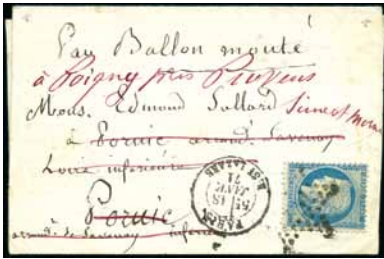 Par Ballon monté
à Poigny près Provins
Mons. Edmond Sollard Seine et Marne
à Pornic arrond. Savenay
Loire inférieure
Pornic
arrond. de Savenay inférieure
PARIS
R. ST LAZARE
5E 18
JANV.
71